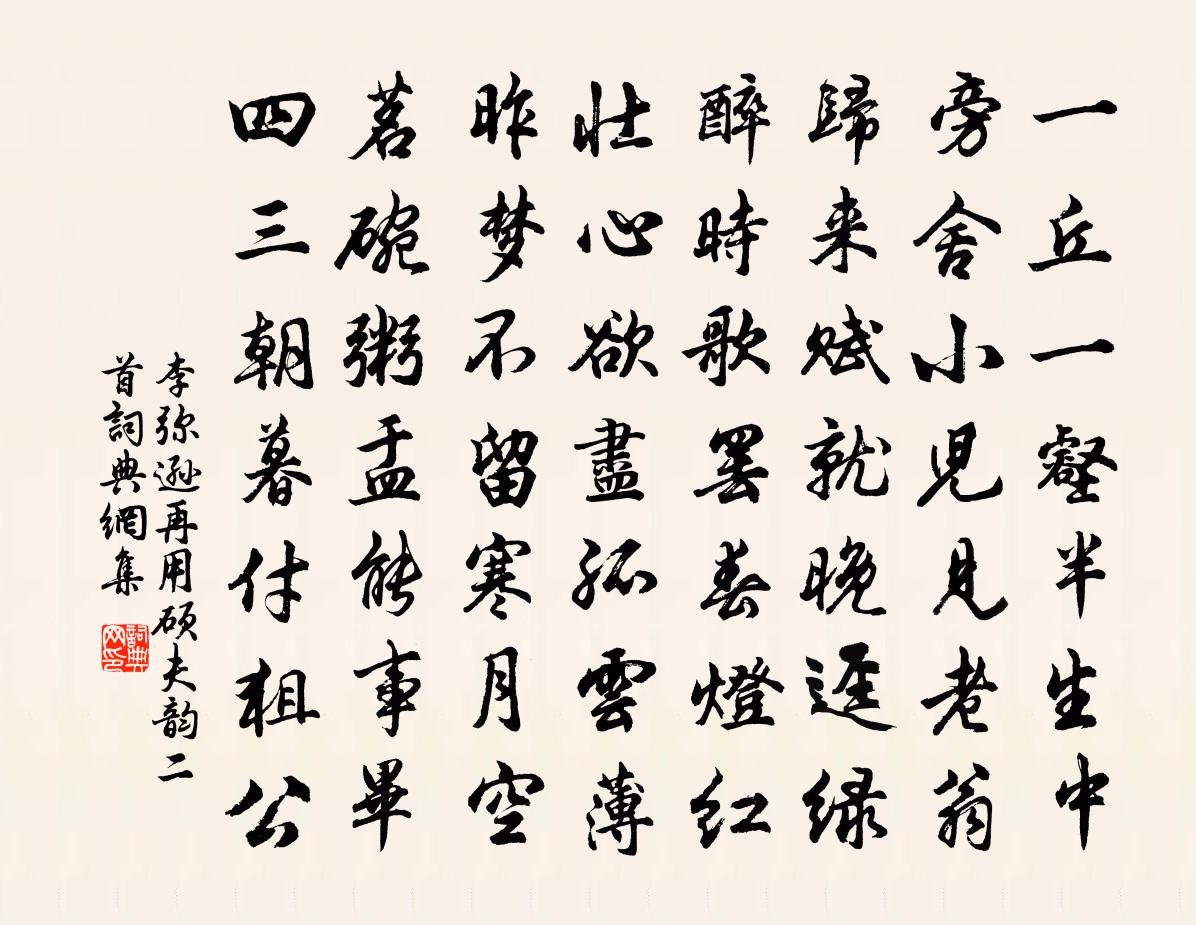 一丘一壑半生中
旁舍小児見老翁
歸来賦就晚逕緑
醉時歌罢春燈红
壮心欲盡孤雲薄
昨梦不留寒月空
茗碗粥盂能事畢
四三朝暮付狙公
李弥逊再用硕夫韵二
首詞典網集
詞典
网印